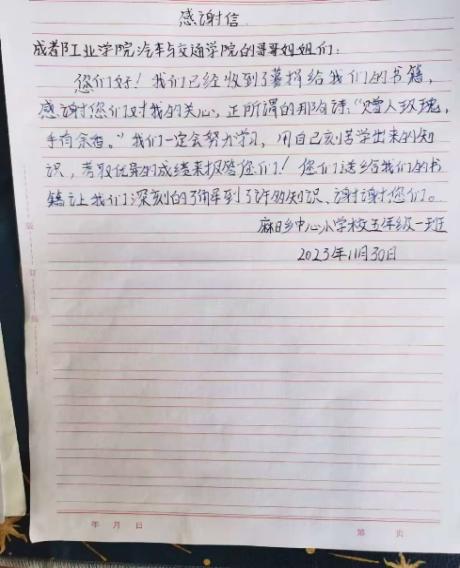 感谢信
成都工业学院汽车与交通学院的哥哥姐姐们:
您们好!我们已经收到了募捐给我们的书籍,
感谢您们对我的关心,正所谓的那句话:“赠人玫瑰,
手有余香。”我们一定会努力学习,用自己刻苦学出来的知
识,考取优异的成绩来报答您们!您们送给我们的书
籍让我们深刻的了解到了许多知识、谢谢您们。
麻日乡中心小学校五年级一班
2023年11月30日
年 月 日
第 页